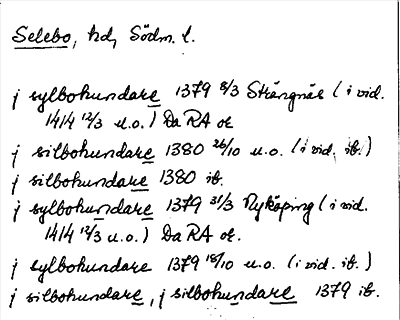 Selebo, hd, Södm. l.
j sylbohundare 1379 8/3 Strängnäs (i vid.
1414 12/3 u.o.) Da RA or
j silbohundare 1380 26/10 u.o. (i vid. ib.)
j silbohundare 1380 ib.
j sylbohundare 1379 31/3 Nyköping (i vid.
1414 12/3 u.o.) Da RA or.
j sylbohundare 1379 18/10 u.o. (i vid. ib.)
j silbohundare, j silbohundare 1379 ib.